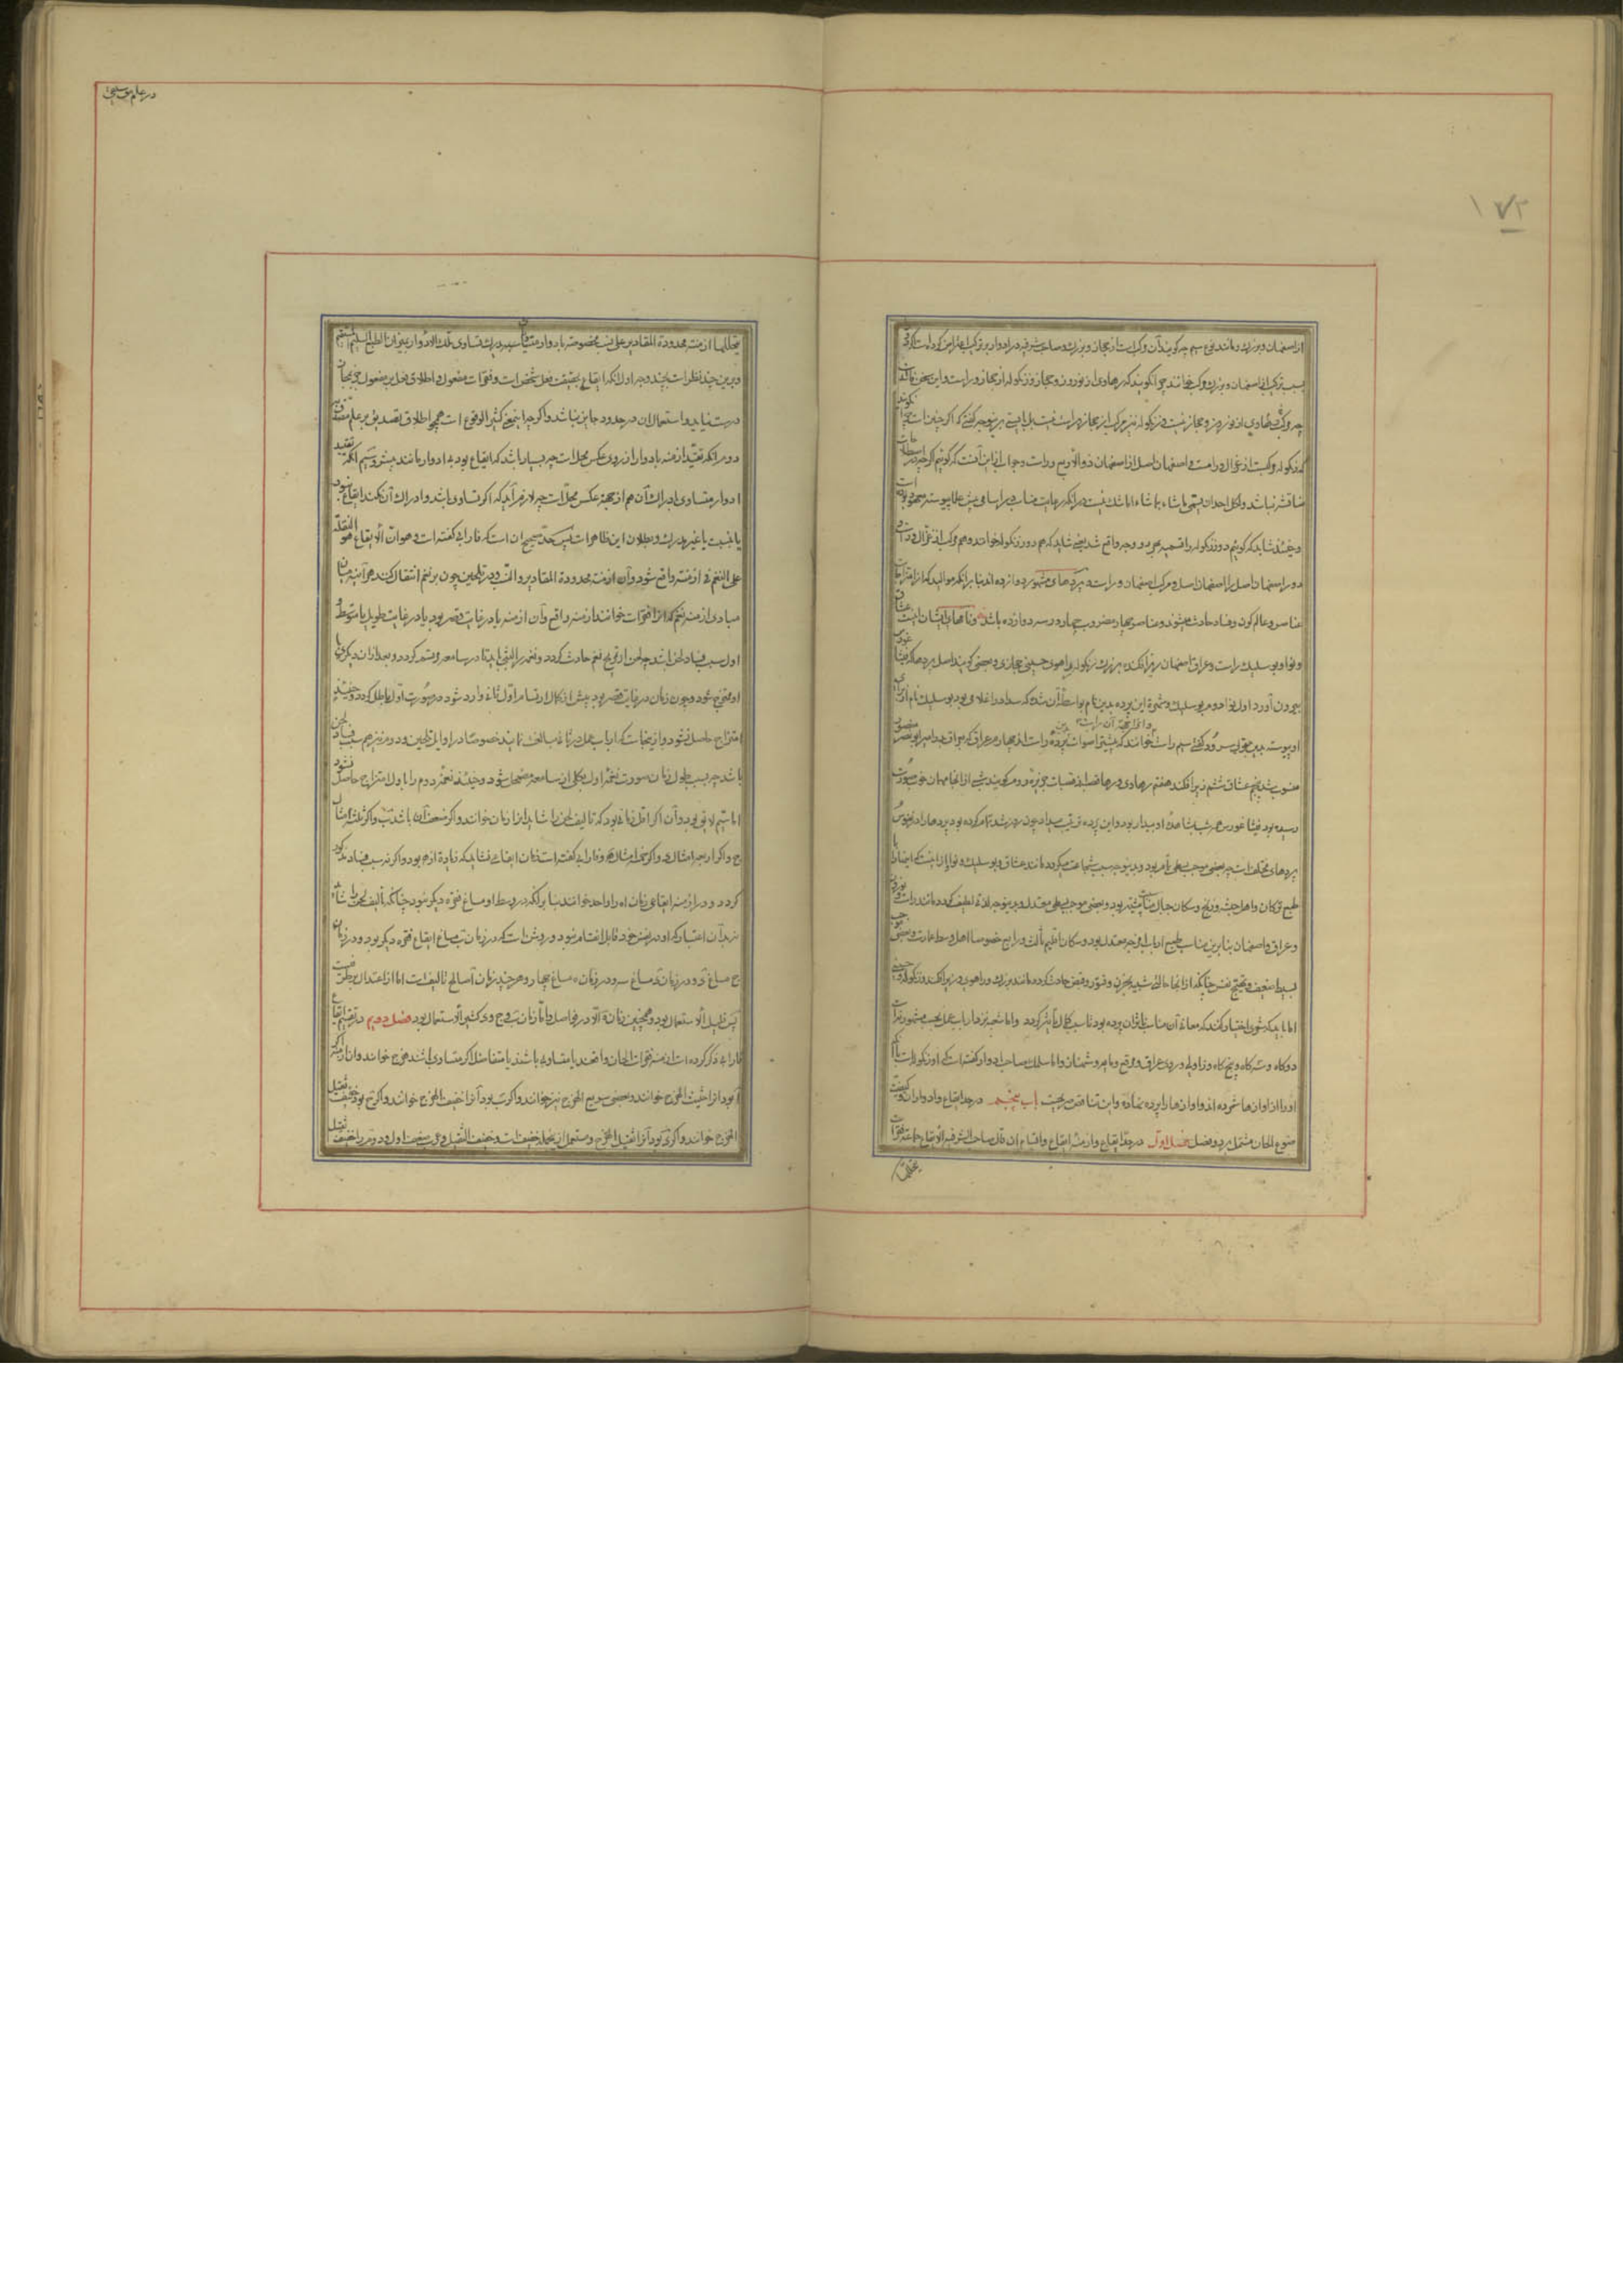 ۱۷۳
از اصفهان و بزرك و مانند نوع سیم چه گویند آن مرکب است از حجاز و بزرك و صاحب شرفیه در ادوار
بسبب ترکیب از اصفهان و بزرك مرکب خوانند چرا نگویند که رهاوی از نوروز و حجاز و زنگوله از حجاز و راست و این سخن
چه مرکب رهاوی از نوروز و حجاز نیست و زنگوله نیز مرکب از حجاز و راست نیست بل بایستی برینوجه گفتن که اگر چنین است چرا نگویند
که زنگوله مرکبست از غزال و راست و اصفهان اصل از اصفهان ذو الاربع و راست و جواب ازین آنست که گوئیم اگرچه در اصطلاحات
مناقشه نباشد و لکل احد ان یسمی ما شاء بما شاء اما شك نیست در آنکه رعایت مناسب در اسامی پیش علما پیوسته معهود بوده است
و حینئذ شاید که گوئیم دور زنگوله را تسمیه بهر دو وجه واقع شد یعنی شاید که هم دور زنگوله خوانند و هم مرکب از غزال و راست و
دور اصفهان اصل را اصفهان اصل و مرکب اصفهان و راست و پردهای مشهور دوازده اند بنابر آنکه موالید که از امتزاجات
عناصر و عالم کون و فساد حادث میشوند و عناصر چهار و مضروب چهار در سه دوازده باشد و نامهای ایشان اینست عشاق
و نوا و بوسلیك و راست و عراق و اصفهان زیرافکند بزرك زنگوله راهوی حسینی حجازی و بعضی گویند اصل پردها که فیثاغورس
بیرون آورد اول نوا دوم بوسلیك و شهرة این پرده بدین نام بواسطه آن شد که
او پیوسته بدین قول سرود گفتی سیم راست و از آن جهة آن راست خوانند که بیشتر اصوات بدین پرده راست آید چهارم عراق که بعراق
منسوب شد پنجم عشاق ششم زیرافکند هفتم رهاوی و رها قصبه از قصبات جزیره و روم گویند شبی از آنجا مهمان خوب صورت
رسیده بود فیثاغورس همه شب بمشاهده او بیدار بود و این پرده ترتیب میداد چون روز شد تمام کرده بود
پردهای مختلف است چه بعضی موجب بسطی تام بود و بدینوجه سبب شجاعت میگردد مانند عشاق و بوسلیك و نوا و ازینست که اینها را با
طبع ترکان و اهل حبشه و زنج و سکان جبال مناسبت بیشتر بود و بعضی موجب بسطی معتدل و برینوجه لذة لطیف گردد مانند راست و نوروز
و عراق و اصفهان بنا برین مناسب طبع ارباب امزجه معتدل بود و سکان اقلیم ثالث و رابع خصوصا اهل وسط عمارت و بعضی موجب
بسط ضعیف و تهییج نفس چنانکه از آنجا حالی شبیه بحزن و فتور و قبض حادث گردد مانند بزرك و راهوی و زیرافکند و زنگوله و حسینی
اما باید که شعری اختیار کنند که معانی آن مناسب تاثیر آن پرده بود تا سبب کمال تاثیر گردد و اما شعبه نزد ارباب عمل بحسب مشهور نه است
دوکاه و سه کاه و پنج کاه و زاولی و روی عراق و مبرقع و مایه و شهناز و اما سلمك صاحب ادوار گفته است که او زنگوله است با آنکه
او را از اوازها شمرده اند و اوازها را پرده نهاده و این تناقض صریحست باب پنجم در حد ایقاع و ادوار ان و کیفیت
صنوع الحان مشتمل بر دو فصل فصل اول در حد ایقاع و ازمنه ایقاع و اقسام ان قال صاحب الشرفیه الایقاع جماعة نقرات
یتخللها
در علم موسیقی
یتخللها ازمنة محدودة المقادیر علی نسب مخصوصة بادوار متساویة یدرك تساوی تلك الادوار بمیزان الطبع السلیم المستقیم
و برین چند نظر است بچند وجه اول آنکه ایقاع بحقیقت فعل شخص است و نقرات مفعول و اطلاق فعل بر مفعول جز بمجاز
درست نیاید و استعمال ان در حدود جایز نباشد و اگرچه این نوع کثیر الوقوع است همچو اطلاق تصدیق بر علم
دوم آنکه تقیید ازمنه بادوار از روی عکس مخل است چه بسیار باشد که ایقاع بود نه ادوار مانند پیشرو سیم آنکه تقیید
ادوار بتساوی و ادراك آن هم از جهة عکس مخل است چه لازم آید که اگر تساوی باشد و ادراك آن نکنند ایقاع نبود
یا بنسبت با غیر مدرك و بطلان این ظاهر است پس حد صحیح ان است که فارابی گفته است و هو ان الایقاع هو النقلة
علی النغم فی ازمنة محدودة المقادیر و النسب و در تلحین چون بر نغم انتقال کنند هر آینه میان
مبادی ازمنه نغم که انرا نقرات خوانند ازمنه واقع شود و آن ازمنه یا در غایت قصر بود یا در غایت طول یا متوسط و
اول سبب فساد لحن باشد چه لحن از مزج نغم حادث گردد و نغمه را لبثی باید تا در سامعه مرتسم گردد و بعد از ان دیگری با
او ممتزج شود و چون زمان در غایت قصر بود پیش از کمال ارتسام اول ثانی وارد شود و صورت اول باطل گردد و حینئذ
امتزاج حاصل نشود و ازینجاست که ارباب عمل در مبالغت نمایند خصوصا در اوایل تلحین و دوم نیز هم سبب فساد لحن
باشد چه بسبب طول زمان صورت نغمه اول بکلی از سامعه مضمحل شود و حینئذ نغمه دوم را با اول امتزاج حاصل نشود
اما سیم لایق بود و آن اگر اقل زمانی بود که تالیف لحن را شاید انرا زمان ا خوانند و اگر ضعف آن باشد ب و اگر ثلثه امثال
ج و اگر اربعه امثال د و اگر خمسه امثال ه و فارابی گفته است زمان ایقاعی نشاید که زیاده از ه بود و اگر نه سبب فساد تواند
گردد و در ازمنه ایقاعی زمان ا را واحد خوانند بنا بر آنکه در وسط او مساغ نقره دیگر نبود چنانکه تالیف لحن را شاید
نه بدان اعتبار که او در نفس خود قابل انقسام نبود و روشن است که در زمان ب مساغ ایقاع نقره دیگر بود و در زمان
ج مساغ دو و در زمان د مساغ سه و در زمان ه مساغ چهار و هر چند زمان ه صالح تالیف است اما از اعتدال بر طرفست
پس قلیل الاستعمال بود و همچنین زمان ا الا در فواصل و اما زمان ب و ج و د کثیر الاستعمال بود فصل دوم در تقسیم ایقاع
فارابی ذکر کرده است ازمنه نقرات الحان واقعند یا متساوی باشند یا متفاضل اگر متساوی باشند هزج خوانند و ان ازمنه اگر
ا بود انرا حثیث الهزج خوانند و بعضی سریع الهزج نیز خوانند و اگر ب بود آنرا خفیف الهزج خوانند و اگر ج بود خفیف ثقیل
الهزج خوانند و اگر د بود آنرا ثقیل الهزج و مستعمل ازینجمله خفیف است و خفیف الثقیل